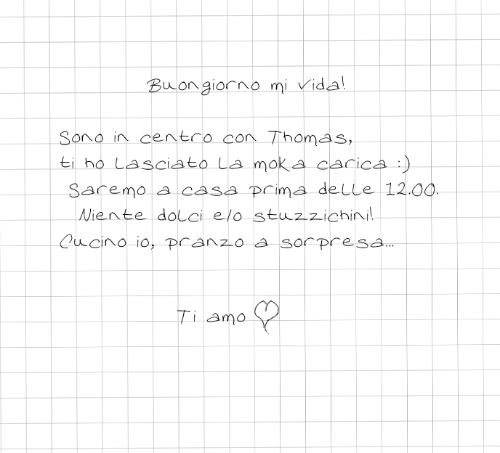 Buongiorno mi vida!
Sono in centro con Thomas,
ti ho lasciato la moka carica :)
Saremo a casa prima delle 12.00.
Niente dolci e/o stuzzichini!
Cucino io, pranzo a sorpresa...
Ti amo ♡